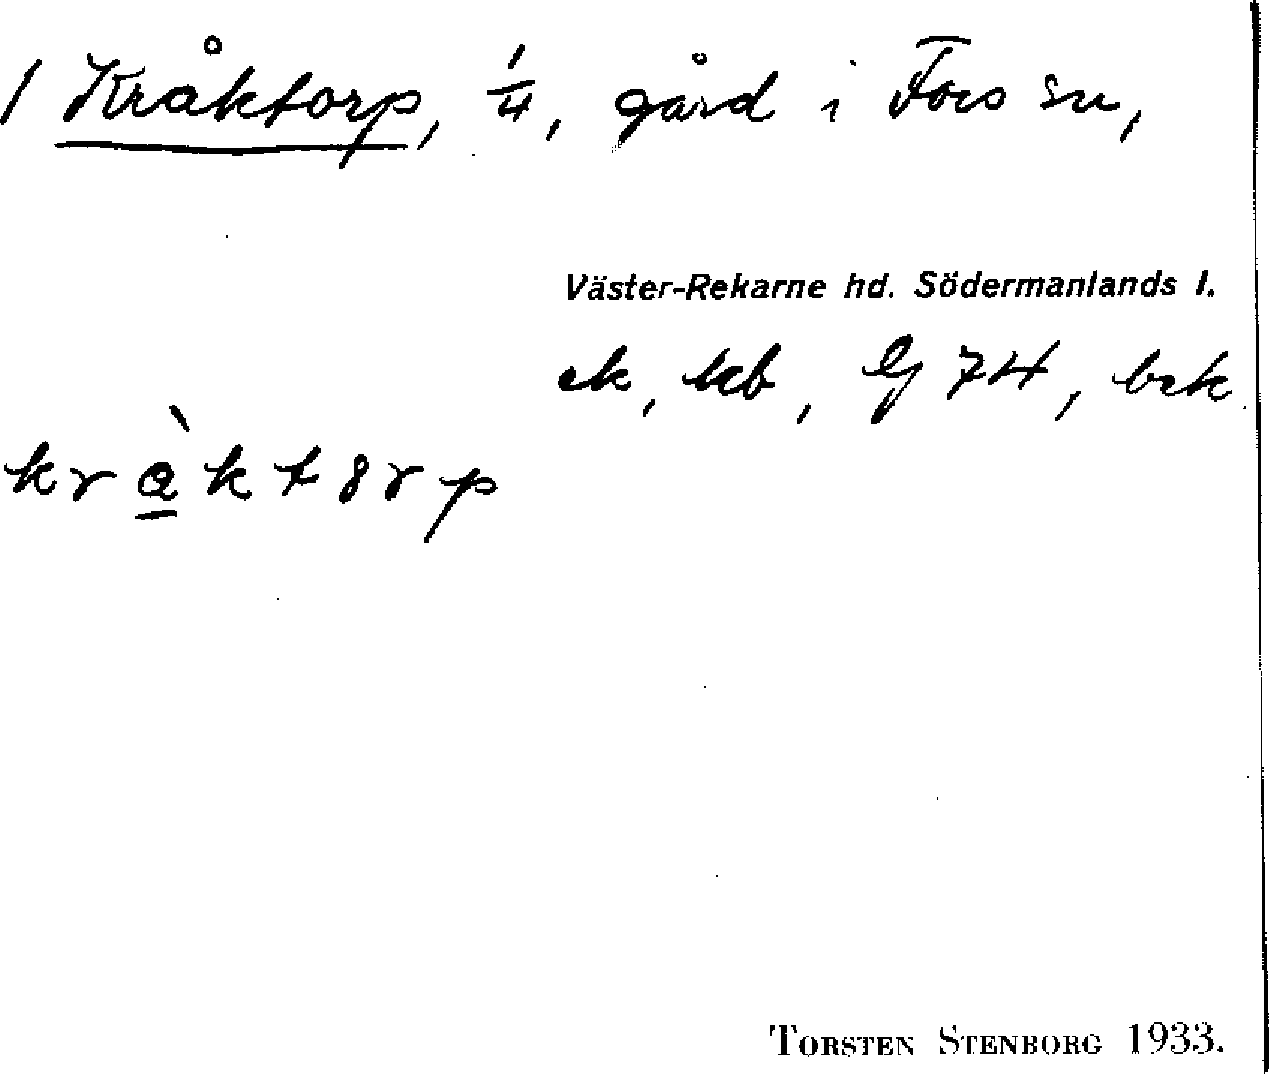 / Kråktorp, 1/4, gård i Fors sn,
Väster-Rekarne hd. Södermanlands l.
ek, kb, G 74, bek
kràktȣrp
TORSTEN STENBORG 1933.